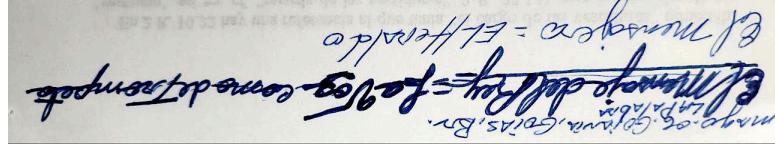 mayo. 06. Goiania, Goiás, Br.
La Palabra
El Mensaje del Rey = La Voz como de Trompeta
El Mensajero = El Heraldo